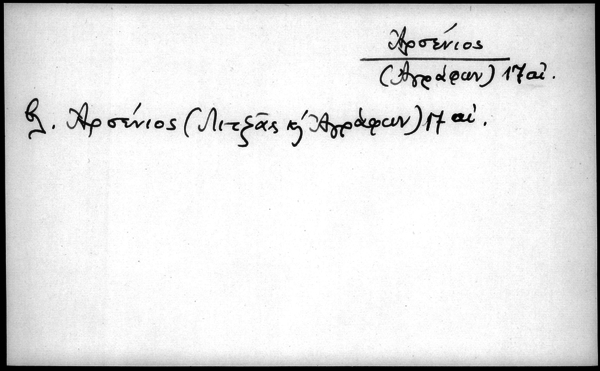 Ἀρσένιος
(Ἀγράφων) 17 αἰ.
βλ. Ἀρσένιος (Λιτζᾶς κ' Ἀγράφων) 17 αἰ.